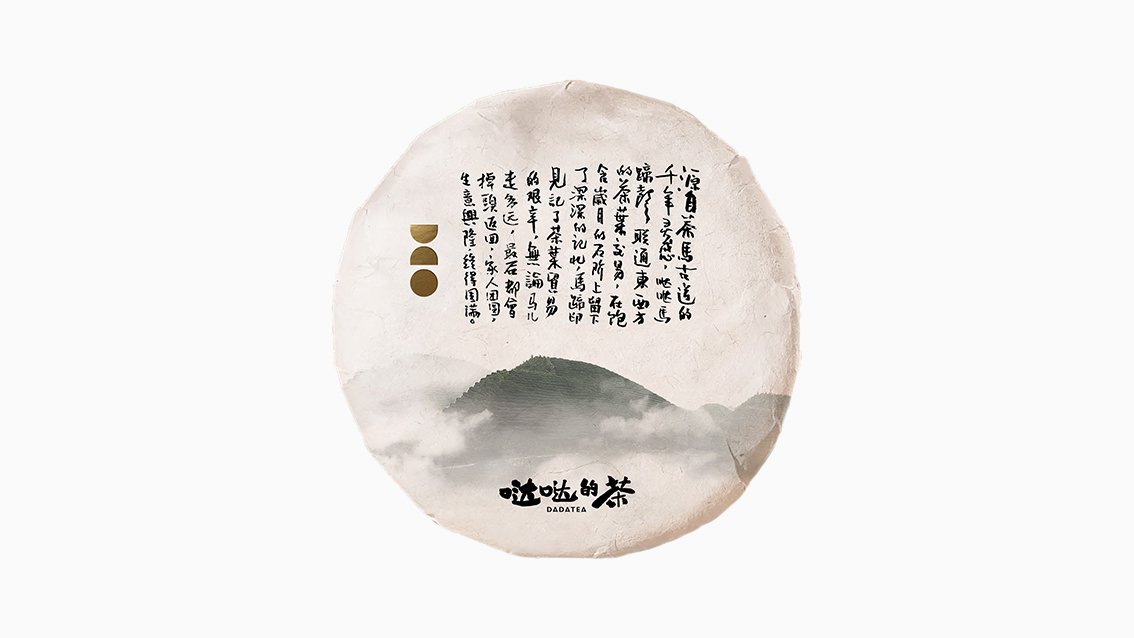 源自茶馬古道的
千年灵感，哒哒馬
蹄聲，联通東西方
的茶葉交易，在饱
含歲月的石阶上留下
了深深的记忆，馬蹄印
見記了茶葉貿易
的艰辛，無論马儿
走多远，最后都會
掉頭返回，家人团圆，
生意興隆，終得圆满。
哒哒的茶
DADATEA